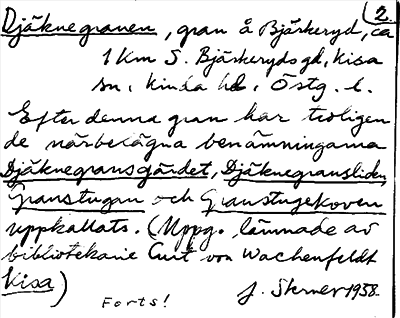 2.
Djäknegranen, gran å Bjärkeryd, ca
1 km S. Bjärkeryds gd, Kisa
sn, Kinda hd, Östg. l.
Efter denna gran har troligen
de närbelägna benämningarna
Djäknegransgärdet, Djäknegransliden,
Granstugan och Granstugekoven
uppkallats. (Uppg. lämnade av
bibliotekarie Curt von Wachenfeldt
Kisa)
Forts! J. Sterner 1938.